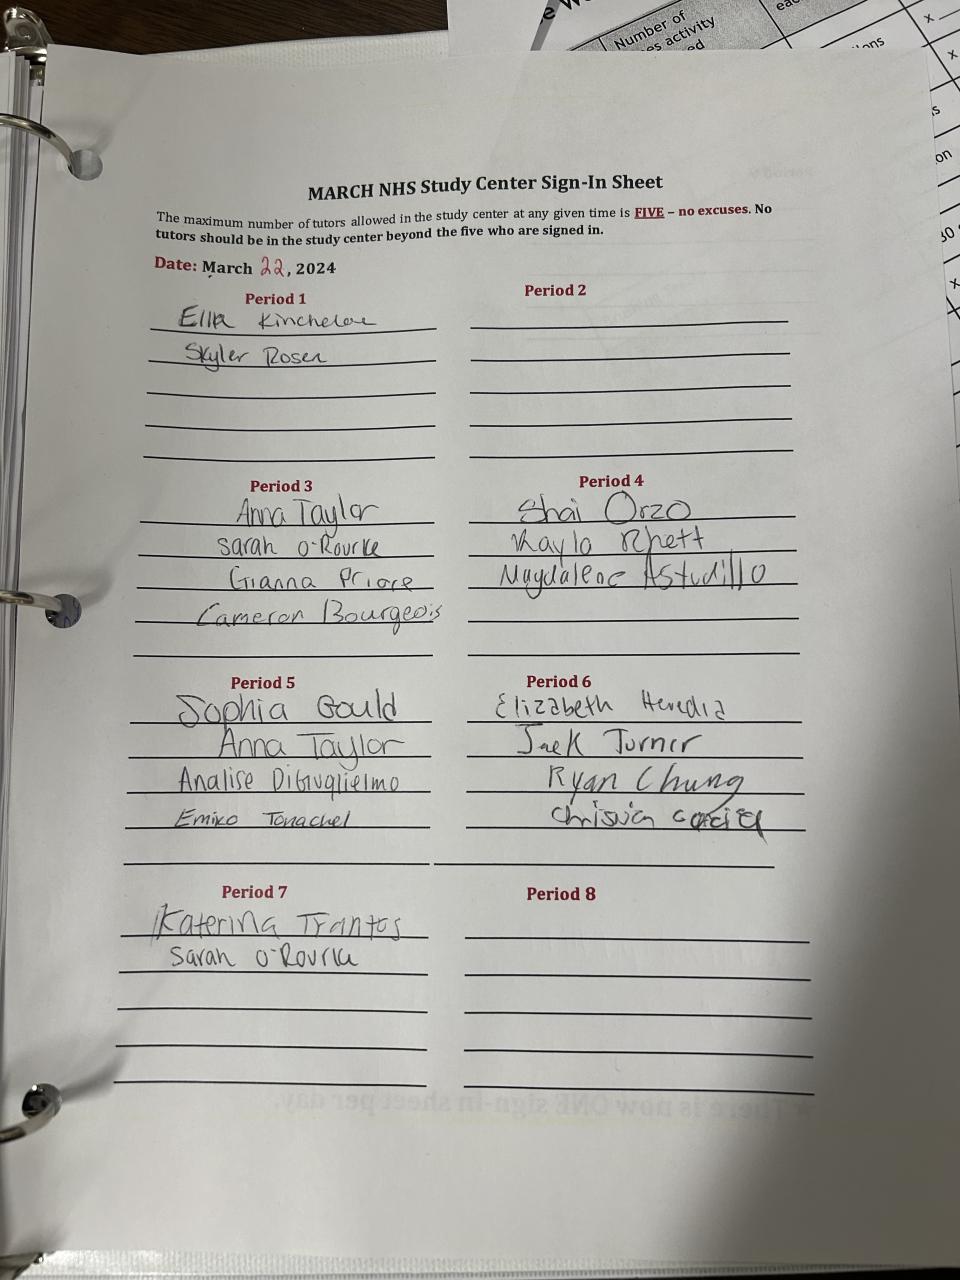 Number of
es activity
ed
ea
ons
x
x
s
on
30
x
MARCH NHS Study Center Sign-In Sheet
The maximum number of tutors allowed in the study center at any given time is FIVE – no excuses. No
tutors should be in the study center beyond the five who are signed in.
Date: March 22, 2024
Period 1
Ella Kincheloe
Skyler Rosen
Period 2
Period 3
Anna Taylor
Sarah O'Rourke
Gianna Priore
Cameron Bourgeois
Period 4
Shai Orzo
Kayla Rhett
Magdalene Astudillo
Period 5
Sophia Gould
Anna Taylor
Analise DiGuglielmo
Emiko Tonachel
Period 6
Elizabeth Heredia
Jack Turner
Ryan Chung
Period 7
Katerina Trantos
Sarah O'Rourke
Period 8
There is now ONE sign-in sheet per day.